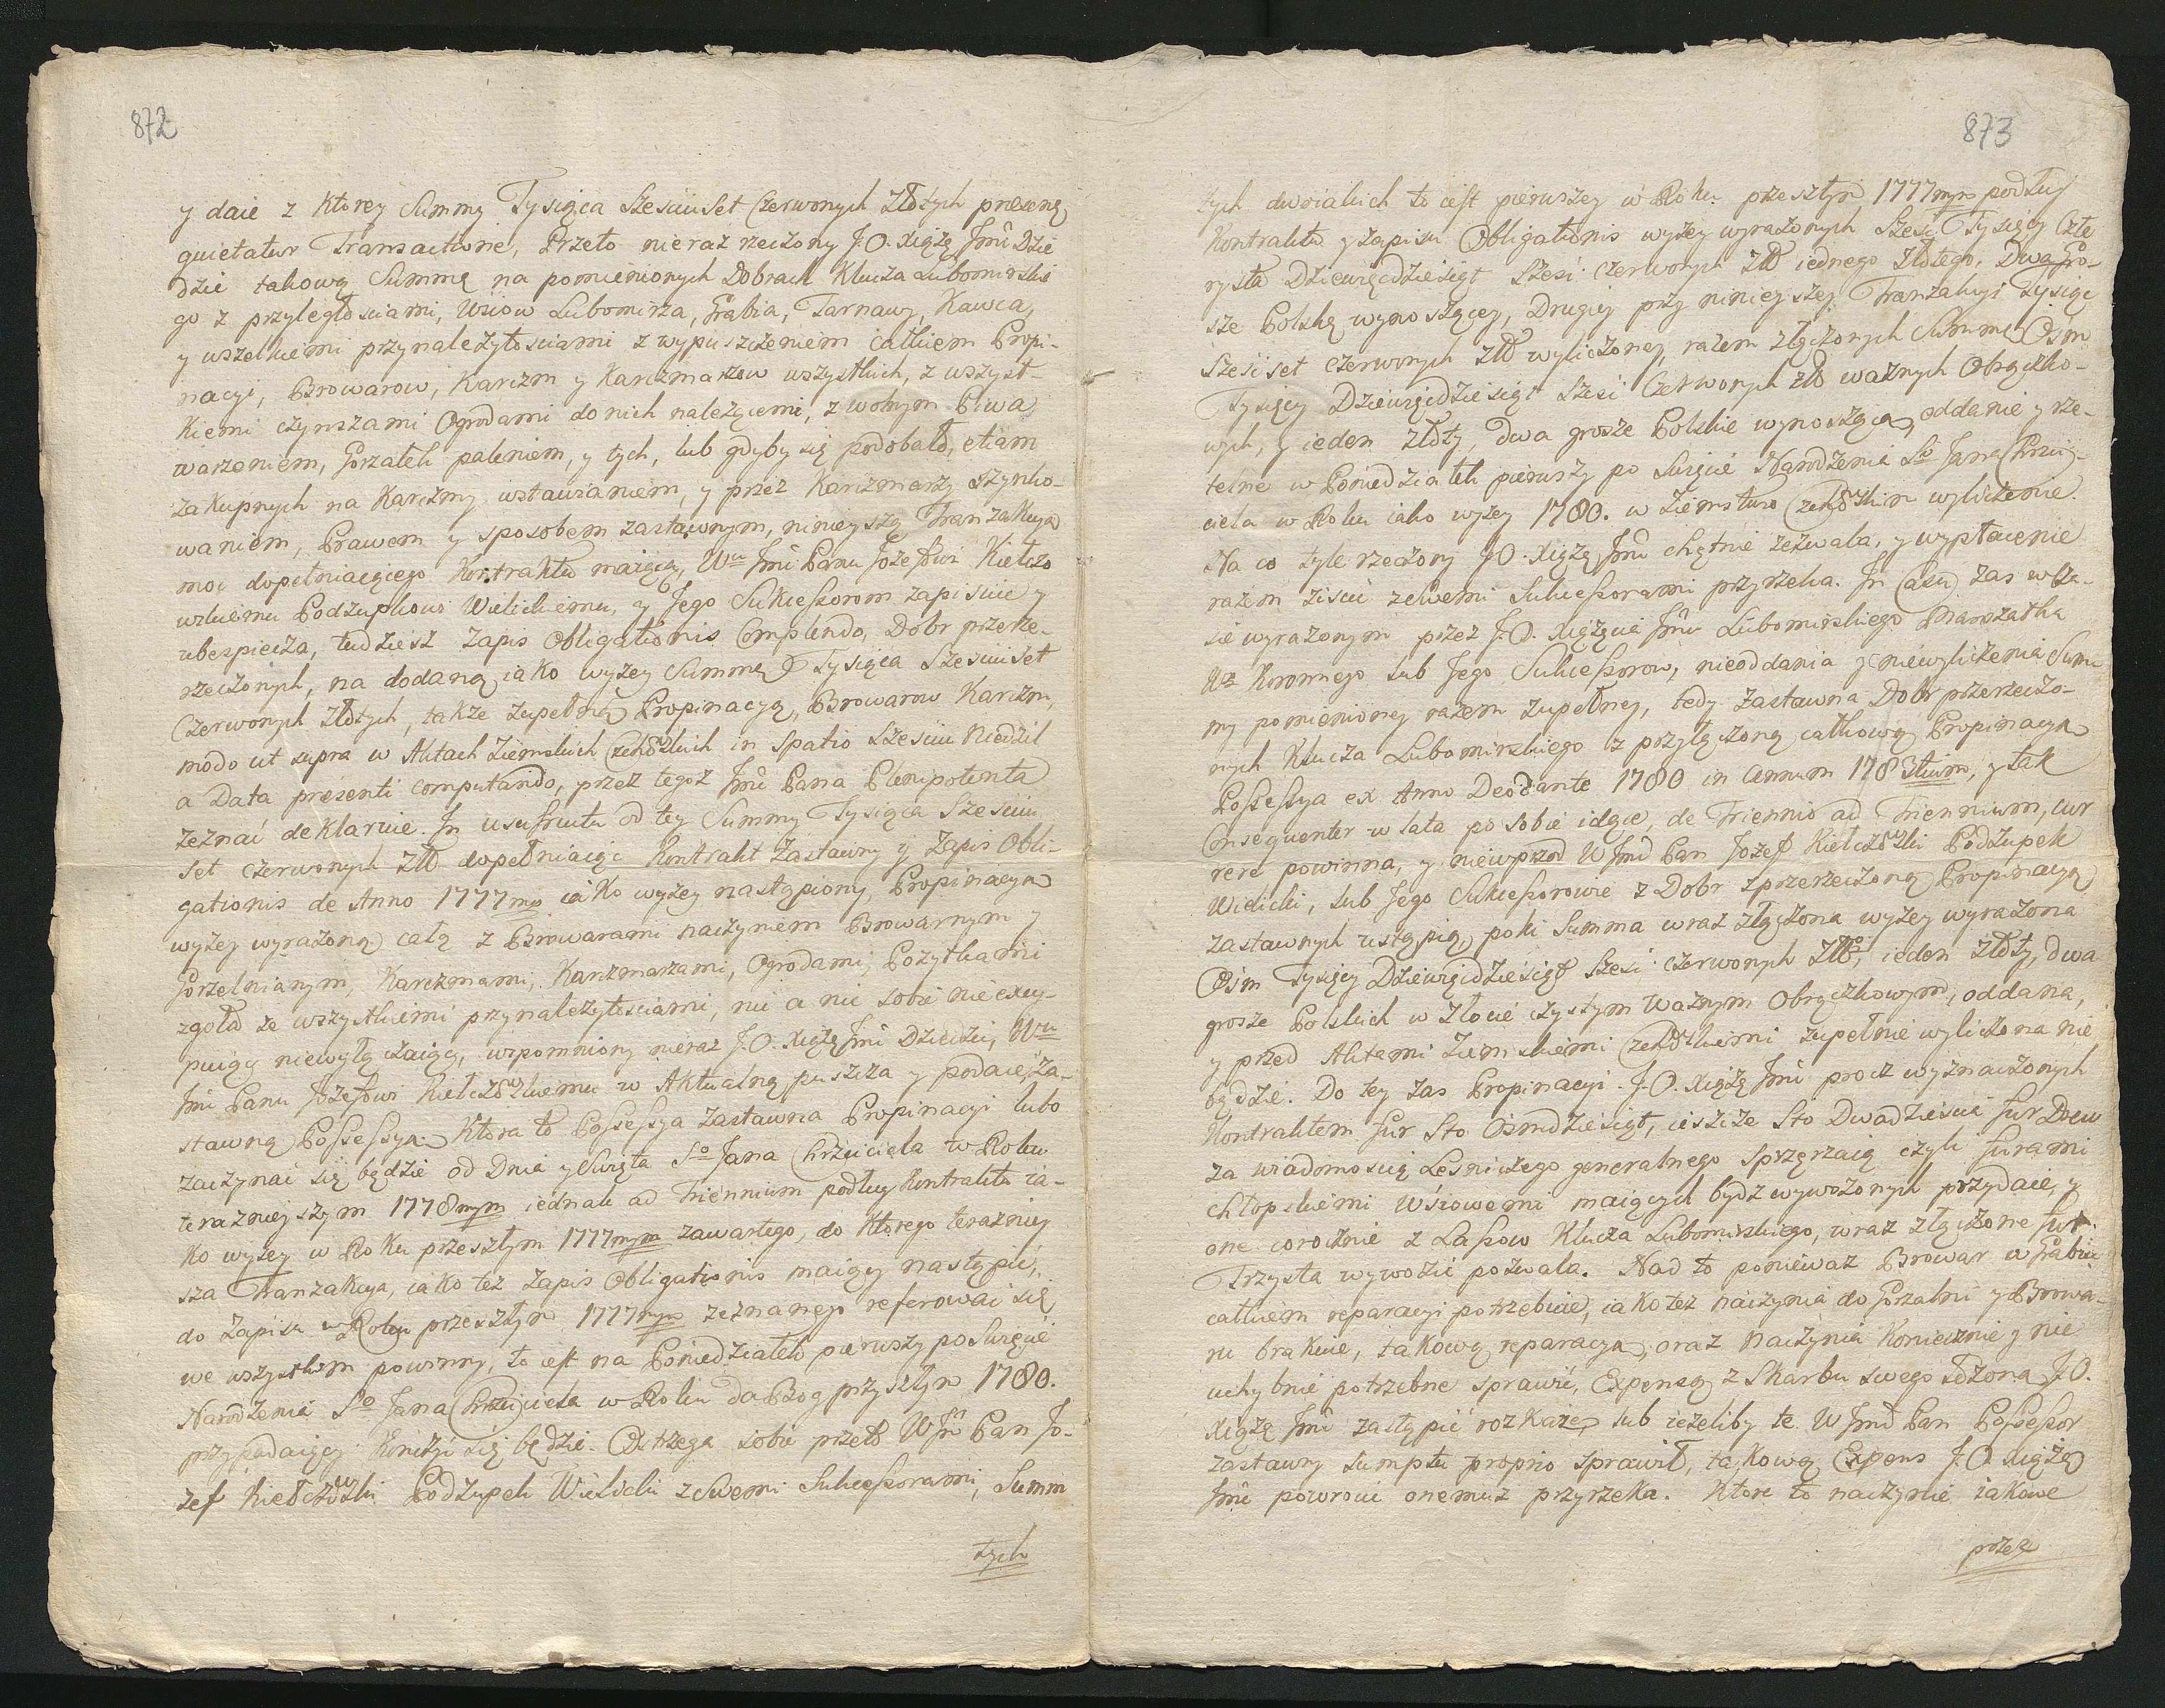 872
y daie z ktorey Summy Tysiąca Szesciuset Czerwonych Złotych præsenti
quietatur Transactione, Przeto nieraz rzeczony J.O. Xiążę Jmć Dzie
dzic takową Summę na pomienionych Dobrach Klucza Lubomirskie
go z przyległościami, Wsiow Lubomirza, Grabia, Tarnawy, Kawca,
y wszelkiemi przynależytosciami z wypuszczeniem całkiem Propi-
nacyi, Browarow, Karczm y Karczmarzow wszystkich, z wszyst-
kiemi czynszami Ogrodami do nich należącemi, z wolnym Piwa
warzeniem, Gorzałek paleniem, y tych, lub gdyby się podobało, etiam
zakupnych na Karczmy wstawianiem, y przez Karczmarzy szynko-
waniem, Prawem y sposobem zastawnym, ninieyszą Tranzakcyą
moc dopełniaiącego Kontraktu maiącą, Wu Jmć Panu Jozefowi Kiełczo
wskiemu Podżupkowi Wielickiemu, y Jego Sukcessorom zapisuie y
ubespiecza, tudziesz zapis Obligationis Complendo, Dobr przerze-
rzeczonych, na dodaną iako wyżey Summę Tysiąca Szesciuset
Czerwonych Złotych, także zupełną Propinacyą, Browarow Karczm,
modo ut supra w Aktach Ziemskich Czchowskich in Spatio Szesciu Niedziel
a Data præsenti computando, przez tegoż Jmć Pana Plenipotenta
zeznać deklaruie. In usufructu od tey Summy Tysiąca Szesciu
set czerwonych Złł dopełniaiąc Kontrakt Zastawny y Zapis Obli-
gationis de Anno 1777mo iako wyżey nastąpiony, Propinacyą
wyżey wyrażoną całą z Browarami naczyniem Browarnym y
Gorzelnianym, Karczmami, Karczmarzami, Ogrodami, Pożytkami
zgoła ze wszystkiemi przynależytesciami, nic a nic sobie nie excy-
puiąc niewyłączaiąc, wspomniony nieraz J.O. Xiążę Jmć Dziedzic, Wu
Jmć Panu Jozefowi Kiełczowskiemu w Aktualną puszcza y podaie za-
stawną Possessyą. Ktora to Possessya zastawna Propinacyi lubo
zaczynać się będzie od Dnia y Swięta So Jana Chrzciciela w Roku
teraznieyszym 1778mym iednak ad Triennium podług Kontraktu ia-
ko wyżey w Roku przeszłym 1777mym zawartego, do ktorego terazniey
sza Tranzakcya, iako też zapis Obligationis maiący nastąpić,
do zapisu w Roku przeszłym 1777mym zeznanego referować się
we wszystkim powinny, to iest na Poniedziałek pierwszy po Swięcie
Narodzenia So Jana Chrzciciela w Roku da Bog przyszłym 1780.
przypadaiący Kończyć się będzie. Ostrzega sobie przeto WJć Pan Jo-
zef Kiełczowski Podżupek Wielicki z Swemi Sukcessorami, Summ
tych
873
tych dwoiakich to iest pierwszey w Roku przeszłym 1777mym podług
Kontraktu y zapisu Obligationis wyżey wyrażonych Szesc Tysięcy Czte
rysta Dziewięcdziesiąt Szesc czerwonych Złł iednego Złotego, Dwa gro-
sze Polskę wynoszącey, Drugiey przy ninieyszey Tranzakcyi Tysiąc
Szescset czerwonych Złł wyliczoney, razem złączonych Summę Osm
Tysięcy Dziewięcdziesiąt Szesc Czerwonych Złł ważnych Obrączko-
wych, y ieden złoty, dwa grosze Polskie wynoszącą, oddanie y rze-
telne w Poniedziałek pierwszy po Swięcie Narodzenia So Jana Chrzci-
ciela w Roku iako wyżey 1780. w Ziemstwo Czchowskim wyliczenie.
Na co tyle rzeczony J.O. Xiążę Jmć chętnie zezwala, y wypłacenie
razem ziscić zeswemi Sukcessorami przyrzeka. In Casu zas w Cza-
sie wyrażonym przez J.O. Xiążęcia Jmci Lubomirskiego Marszałka
Wz Koronnego lub Jego Sukcessorow, nieoddania y niewyliczenia Sum
my pomienioney razem zupełney, tedy zastawna Dobr przerzeczo-
nych Klucza Lubomirskiego z przyłączoną całkową Propinacyą
Possessya ex Anno Deodante 1780 in Annum 1783tium, y tak
Consequenter w lata po sobie idące, de Triennio ad Triennium, cur
rere powinna, y niewprzod WJmć Pan Jozef Kiełczowski Podżupek
Wielicki, lub Jego Sukcessorowie z Dobr z przerzeczoną Propinacyą
zastawnych ustąpią, poki Summa wraz złączona wyżey wyrażona
Ośm Tysięcy Dziewięcdziesiąt Szesc czerwonych Złł, ieden złoty, dwa
grosze Polskich w Złocie czystym ważnym Obrączkowym, oddana,
y przed Aktami Ziemskiemi Czchowskiemi zupełnie wyliczona nie
będzie. Do tey zas Propinacyi J.O. Xiążę Jmć procz wyznaczonych
Kontraktem Fur Sto Osmdziesiąt, ieszcze Sto Dwadziescia Fur Drew
za wiadomoscią Lesniczego generalnego Sprzęzaią czyli furami
chłopskiemi Wsiowemi maiących bydz wywożonych przydaie, y
one corocznie z Lassow Klucza Lubomirskiego, wraz złączone fur
Trzysta wywozić pozwala. Nad to poniewaz Browar w Grabiu
całkiem reparacyi potrzebuie, iako też naczynia do Gorzalni y Browa-
ru brakuie, takową reparacyą, oraz naczynia koniecznie y nie
uchybnie potrzebne sprawić, Expensą z Skarbu swego łożoną J.O.
Xiążę Jmć zastąpić rozkaże, lub ieżeliby te WJmć Pan Possessor
zastawny sumptu proprio sprawił, takową Expens J.O. Xiążę
Jmć powrocić onemuż przyrzeka. Ktore to naczynie iakowe
przez